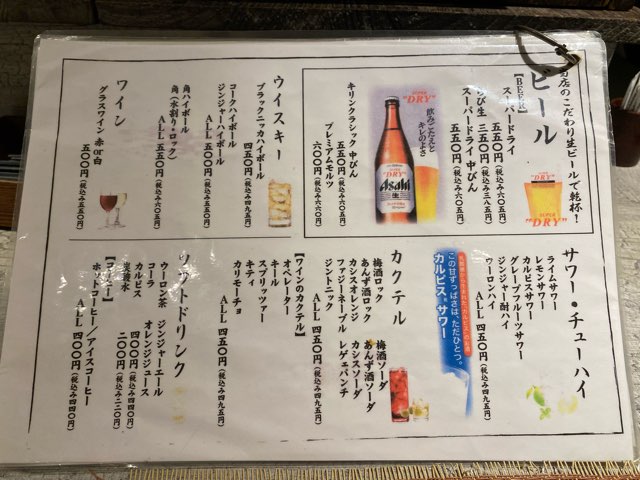 当店のこだわり生ビールで乾杯!
ビール
【BEER】
スーパードライ
五五〇円(税込み六〇五円)
ちび生 三五〇円(税込み三八五円)
スーパードライ 中びん
五五〇円(税込み六〇五円)
SUPER "DRY"
SUPER "DRY"
飲みごたえと
キレのよさ
SUPER "DRY"
Asahi
生
キリンクラシック 中びん
五五〇円(税込み六〇五円)
プレミアムモルツ
六〇〇円(税込み六六〇円)
ウイスキー
ブラックニッカハイボール
四五〇円(税込み四九五円)
コークハイボール
ジンジャーハイボール
ALL 五〇〇円(税込み五五〇円)
角ハイボール
角(水割り・ロック)
ALL 五五〇円(税込み六〇五円)
ワイン
グラスワイン 赤or白
五〇〇円(税込み五五〇円)
サワー・チューハイ
ライムサワー
レモンサワー
カルピスサワー
グレープフルーツサワー
ジンジャー酎ハイ
ウーロンハイ
ALL 四五〇円(税込み四九五円)
この甘ずっぱさは、ただひとつ。
カルピスサワー
カクテル
梅酒ロック 梅酒ソーダ
あんず酒ロック あんず酒ソーダ
カシスオレンジ カシスソーダ
ファジーネーブル レゲェパンチ
ジントニック
ALL 四五〇円(税込み四九五円)
【ワインのカクテル】
オペレーター
キール
スプリッツァー
キティ
カリモーチョ
ALL 四五〇円(税込み四九五円)
ソフトドリンク
ウーロン茶 ジンジャーエール
コーラ オレンジジュース
カルピス 四〇〇円(税込み四四〇円)
炭酸水 二〇〇円(税込み二二〇円)
【コーヒー】
ホットコーヒー/アイスコーヒー
ALL 四〇〇円(税込み四四〇円)